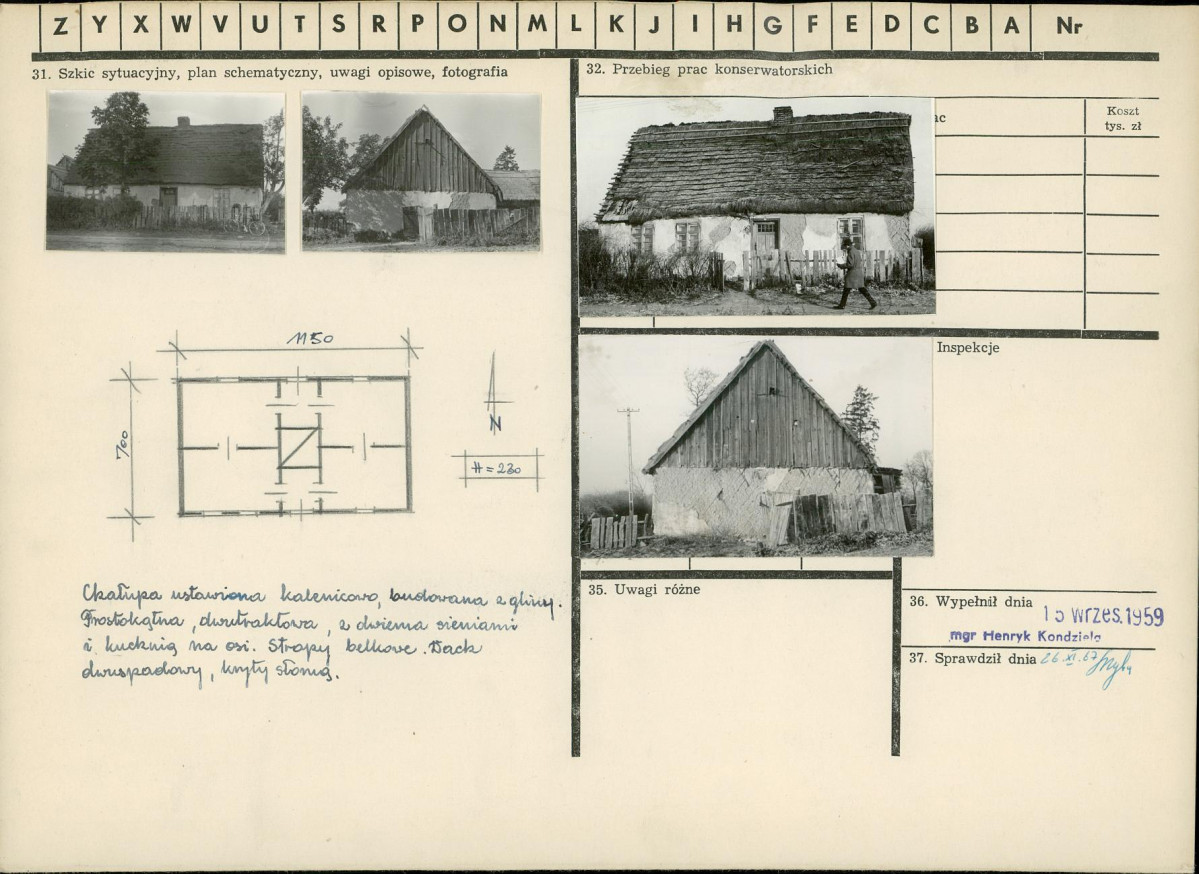 Z Y X W V U T S R P O N M L K J I H G F E D C B A Nr
31. Szkic sytuacyjny, plan schematyczny, uwagi opisowe, fotografia
1150
700
N
H = 230
Chałupa ustawiona kalenicowo, budowana z gliny.
Prostokątna, dwutraktowa, z dwiema sieniami
i kuchnią na osi. Stropy belkowe. Dach
dwuspadowy, kryty słomą.
32. Przebieg prac konserwatorskich
ac
Koszt
tys. zł
Inspekcje
35. Uwagi różne
36. Wypełnił dnia
15 wrzes. 1959
mgr Henryk Kondziela
37. Sprawdził dnia 26.XI.67